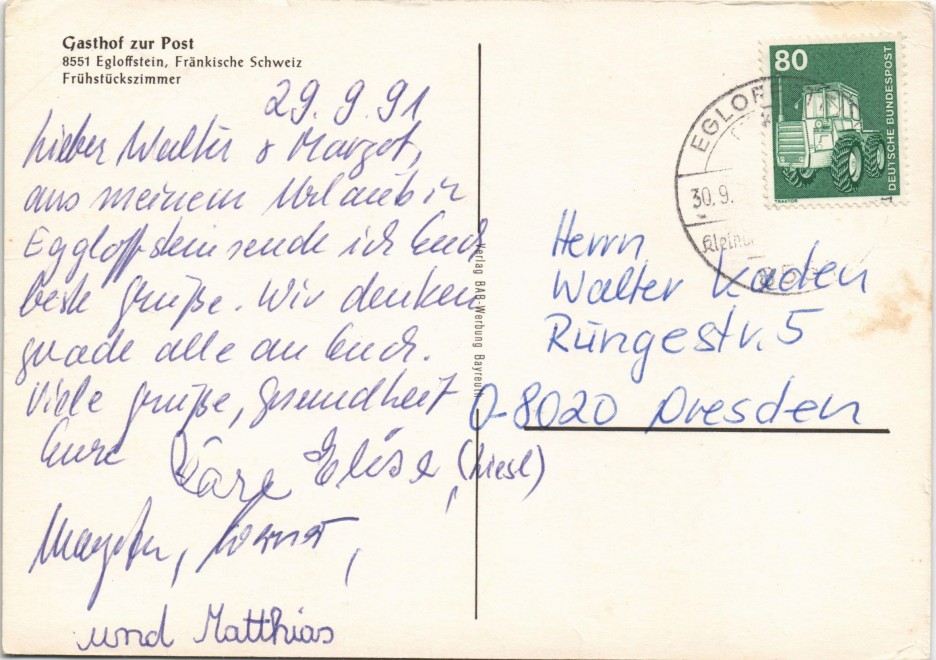 Gasthof zur Post
8551 Egloffstein, Fränkische Schweiz
Frühstückszimmer
29.9.91
Lieber Walter & Margot,
aus meinem Urlaub in
Eggloffstein sende ich Euch
beste Grüße. Wir denken
grade alle an Euch.
Viele Grüße, Gesundheit
Eure
Elise (Liesl)
und Matthias
Verlag BAB-Werbung Bayreuth
80
DEUTSCHE BUNDESPOST
TRAKTOR
EGLOF
30.9.
Herrn
Walter Kaden
Rungestr. 5
O-8020 Dresden